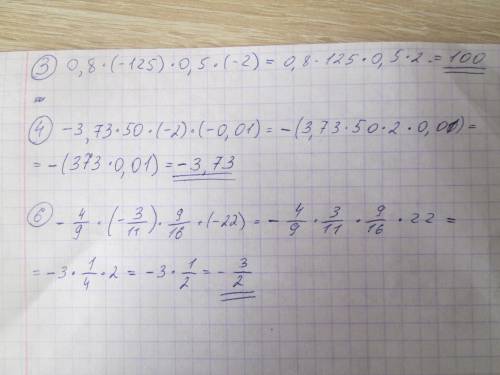 ③ 0,8 · (-125) · 0,5 · (-2) = 0,8 · 125 · 0,5 · 2 = 100
④ -3,73 · 50 · (-2) · (-0,01) = -(3,73 · 50 · 2 · 0,01) =
= -(373 · 0,01) = -3,73
⑥ -4/9 · (-3/11) · 9/16 · (-22) = -4/9 · 3/11 · 9/16 · 22 =
= -3 · 1/4 · 2 = -3 · 1/2 = -3/2